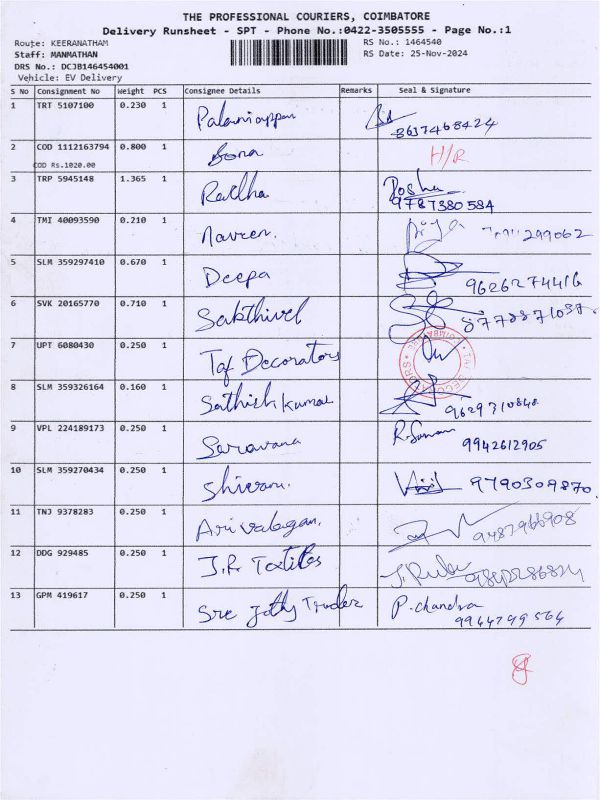 THE PROFESSIONAL COURIERS, COIMBATORE
Delivery Runsheet - SPT - Phone No.:0422-3505555 - Page No.:1
Route: KEERANATHAM
RS No.: 1464540
Staff: MANMATHAN
RS Date: 25-Nov-2024
DRS No.: DCJB146454001
Vehicle: EV Delivery
S No Consignment No Weight PCS Consignee Details Remarks Seal & Signature
1 TRT 5107100 0.230 1 Palaniappan 8637468424
2 COD 1112163794 0.800 1 Bona H/R
COD Rs.1020.00
3 TRP 5945148 1.365 1 Radha 9787380584
4 TMI 40093590 0.210 1 Naveen.
5 SLM 359297410 0.670 1 Deepa 9626274416
6 SVK 20165770 0.710 1 Sakthivel
7 UPT 6080430 0.250 1 Taf Decorators
8 SLM 359326164 0.160 1 Sathish Kumar 9629710848
9 VPL 224189173 0.250 1 Saravana 9942612905
10 SLM 359270434 0.250 1 Shivani. 9790309870
11 TNJ 9378283 0.250 1 Arivalagan. 9487966908
12 DDG 929485 0.250 1 J.R. Textiles
13 GPM 419617 0.250 1 Sre Jothy Trader P. chandra
9944799564